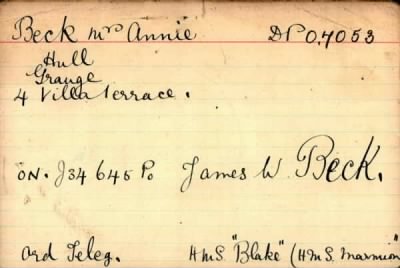 Beck Mrs Annie D.P.O. 7053
Hull
Grange
4 Villa Terrace.
O.N. J34645 Po James W Beck.
Ord Teleg. HMS. "Blake" (H.M.S. Marmion"